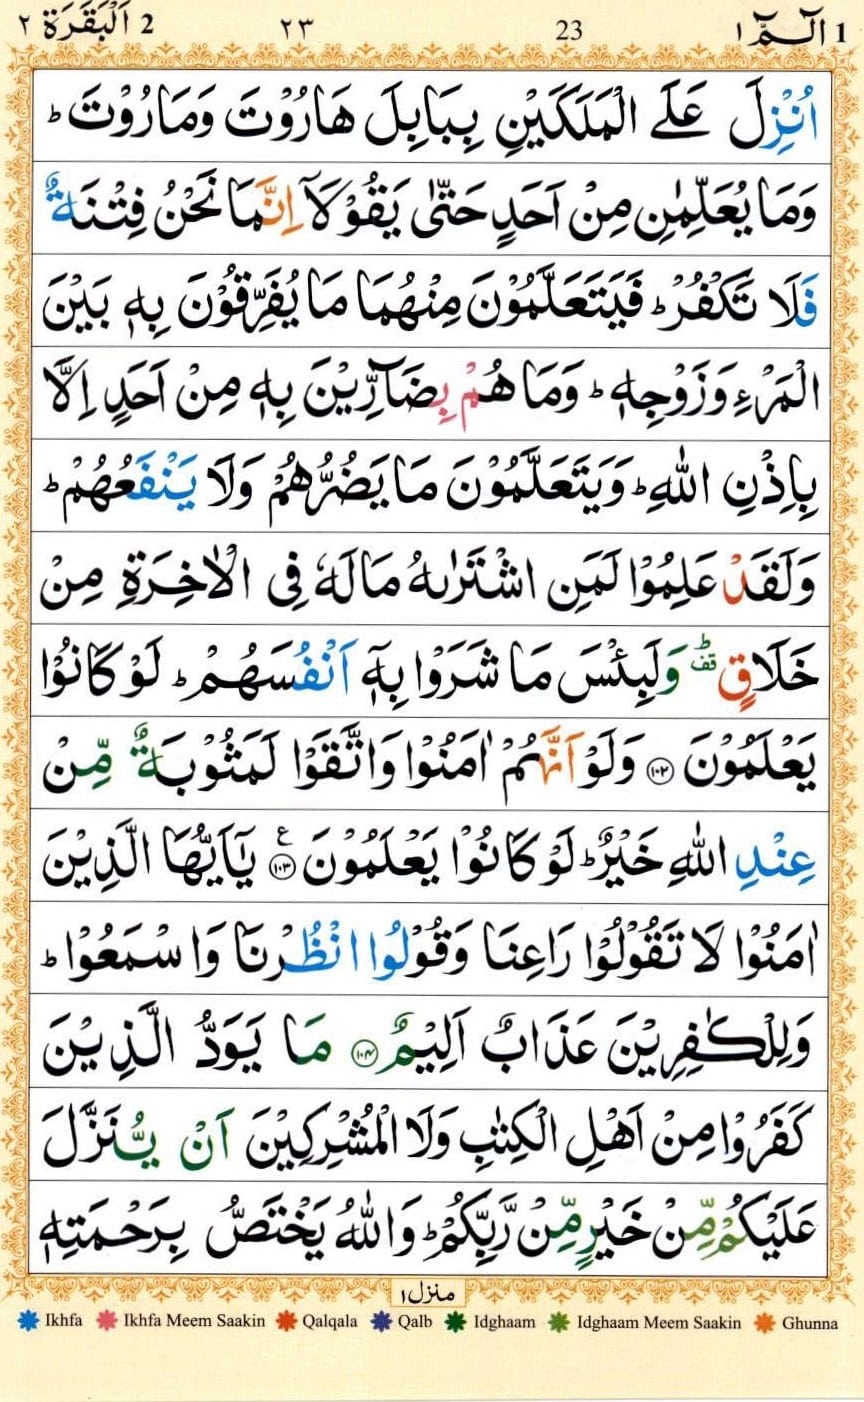 1 الٓـمّٓ ۱ 23 ۲۳ 2 اَلْبَقَرَة ۲
اُنْزِلَ عَلَى الْمَلَكَيْنِ بِبَابِلَ هَارُوْتَ وَمَارُوْتَ ؕ
وَمَا يُعَلِّمٰنِ مِنْ اَحَدٍ حَتّٰى يَقُوْلَاۤ اِنَّمَا نَحْنُ فِتْنَةٌ
فَلَا تَكْفُرْ ؕ فَيَتَعَلَّمُوْنَ مِنْهُمَا مَا يُفَرِّقُوْنَ بِهٖ بَيْنَ
الْمَرْءِ وَزَوْجِهٖ ؕ وَمَا هُمْ بِضَآرِّيْنَ بِهٖ مِنْ اَحَدٍ اِلَّا
بِاِذْنِ اللّٰهِ ؕ وَيَتَعَلَّمُوْنَ مَا يَضُرُّهُمْ وَلَا يَنْفَعُهُمْ ؕ
وَلَقَدْ عَلِمُوْا لَمَنِ اشْتَرٰىهُ مَا لَهٗ فِى الْاٰخِرَةِ مِنْ
خَلَاقٍ ؕ قف وَلَبِئْسَ مَا شَرَوْا بِهٖۤ اَنْفُسَهُمْ ؕ لَوْ كَانُوْا
يَعْلَمُوْنَ ۝۱۰۲ وَلَوْ اَنَّهُمْ اٰمَنُوْا وَاتَّقَوْا لَمَثُوْبَةٌ مِّنْ
عِنْدِ اللّٰهِ خَيْرٌ ؕ لَوْ كَانُوْا يَعْلَمُوْنَ ۝۱۰۳ ع يٰۤاَيُّهَا الَّذِيْنَ
اٰمَنُوْا لَا تَقُوْلُوْا رَاعِنَا وَقُوْلُوا انْظُرْنَا وَاسْمَعُوْا ؕ
وَلِلْكٰفِرِيْنَ عَذَابٌ اَلِيْمٌ ۝۱۰۴ مَا يَوَدُّ الَّذِيْنَ
كَفَرُوْا مِنْ اَهْلِ الْكِتٰبِ وَلَا الْمُشْرِكِيْنَ اَنْ يُّنَزَّلَ
عَلَيْكُمْ مِّنْ خَيْرٍ مِّنْ رَّبِّكُمْ ؕ وَاللّٰهُ يَخْتَصُّ بِرَحْمَتِهٖ
منزل ۱
Ikhfa Ikhfa Meem Saakin Qalqala Qalb Idghaam Idghaam Meem Saakin Ghunna